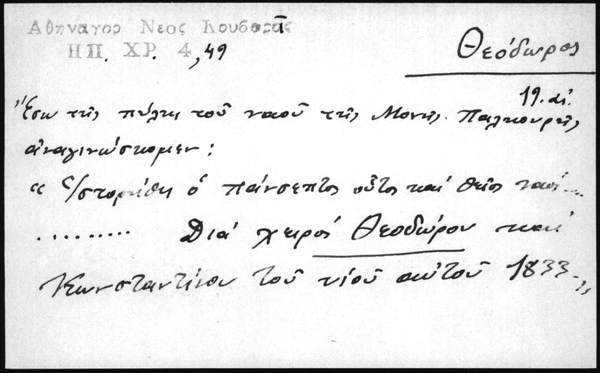 Αθηναγορ Νεος Κουβαρᾶ
ΗΠ. ΧΡ. 4, 49
Θεόδωρος
19. αἰ.
Ἔσω τῆς πύλης τοῦ ναοῦ τῆς Μονῆς Παλιουρῆς
ἀναγινώσκομεν:
"Ἱστορήθη ὁ πάνσεπτος οὗτος καὶ θεῖος ναὸς...
......... Διὰ χειρὸς Θεοδώρου καὶ
Κωνσταντίνου τοῦ υἱοῦ αὐτοῦ 1833-"